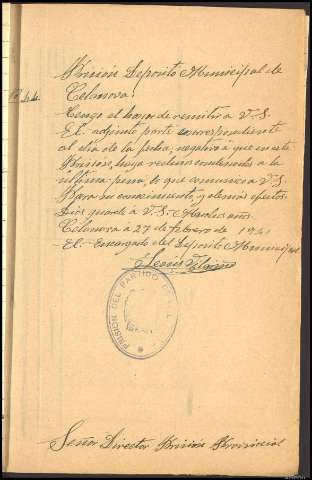 Prisión Deposito Municipal de
Celanova!
Tengo el honor de remitir a V.S.
El adjunto parte correspondiente
al dia de la fecha, negativo a que en este
Prision, haya reclusos condenados a la
ultima pena, lo que comunico a V.S.
Para su conocimiento, y demás efectos.
Dios guarde a V.S. Muchos años.
Celanova a 27 de febrero de 1941
El Encargado del Deposito Municipal
PRISION DEL PARTIDO
Señor Director Prision Provincial